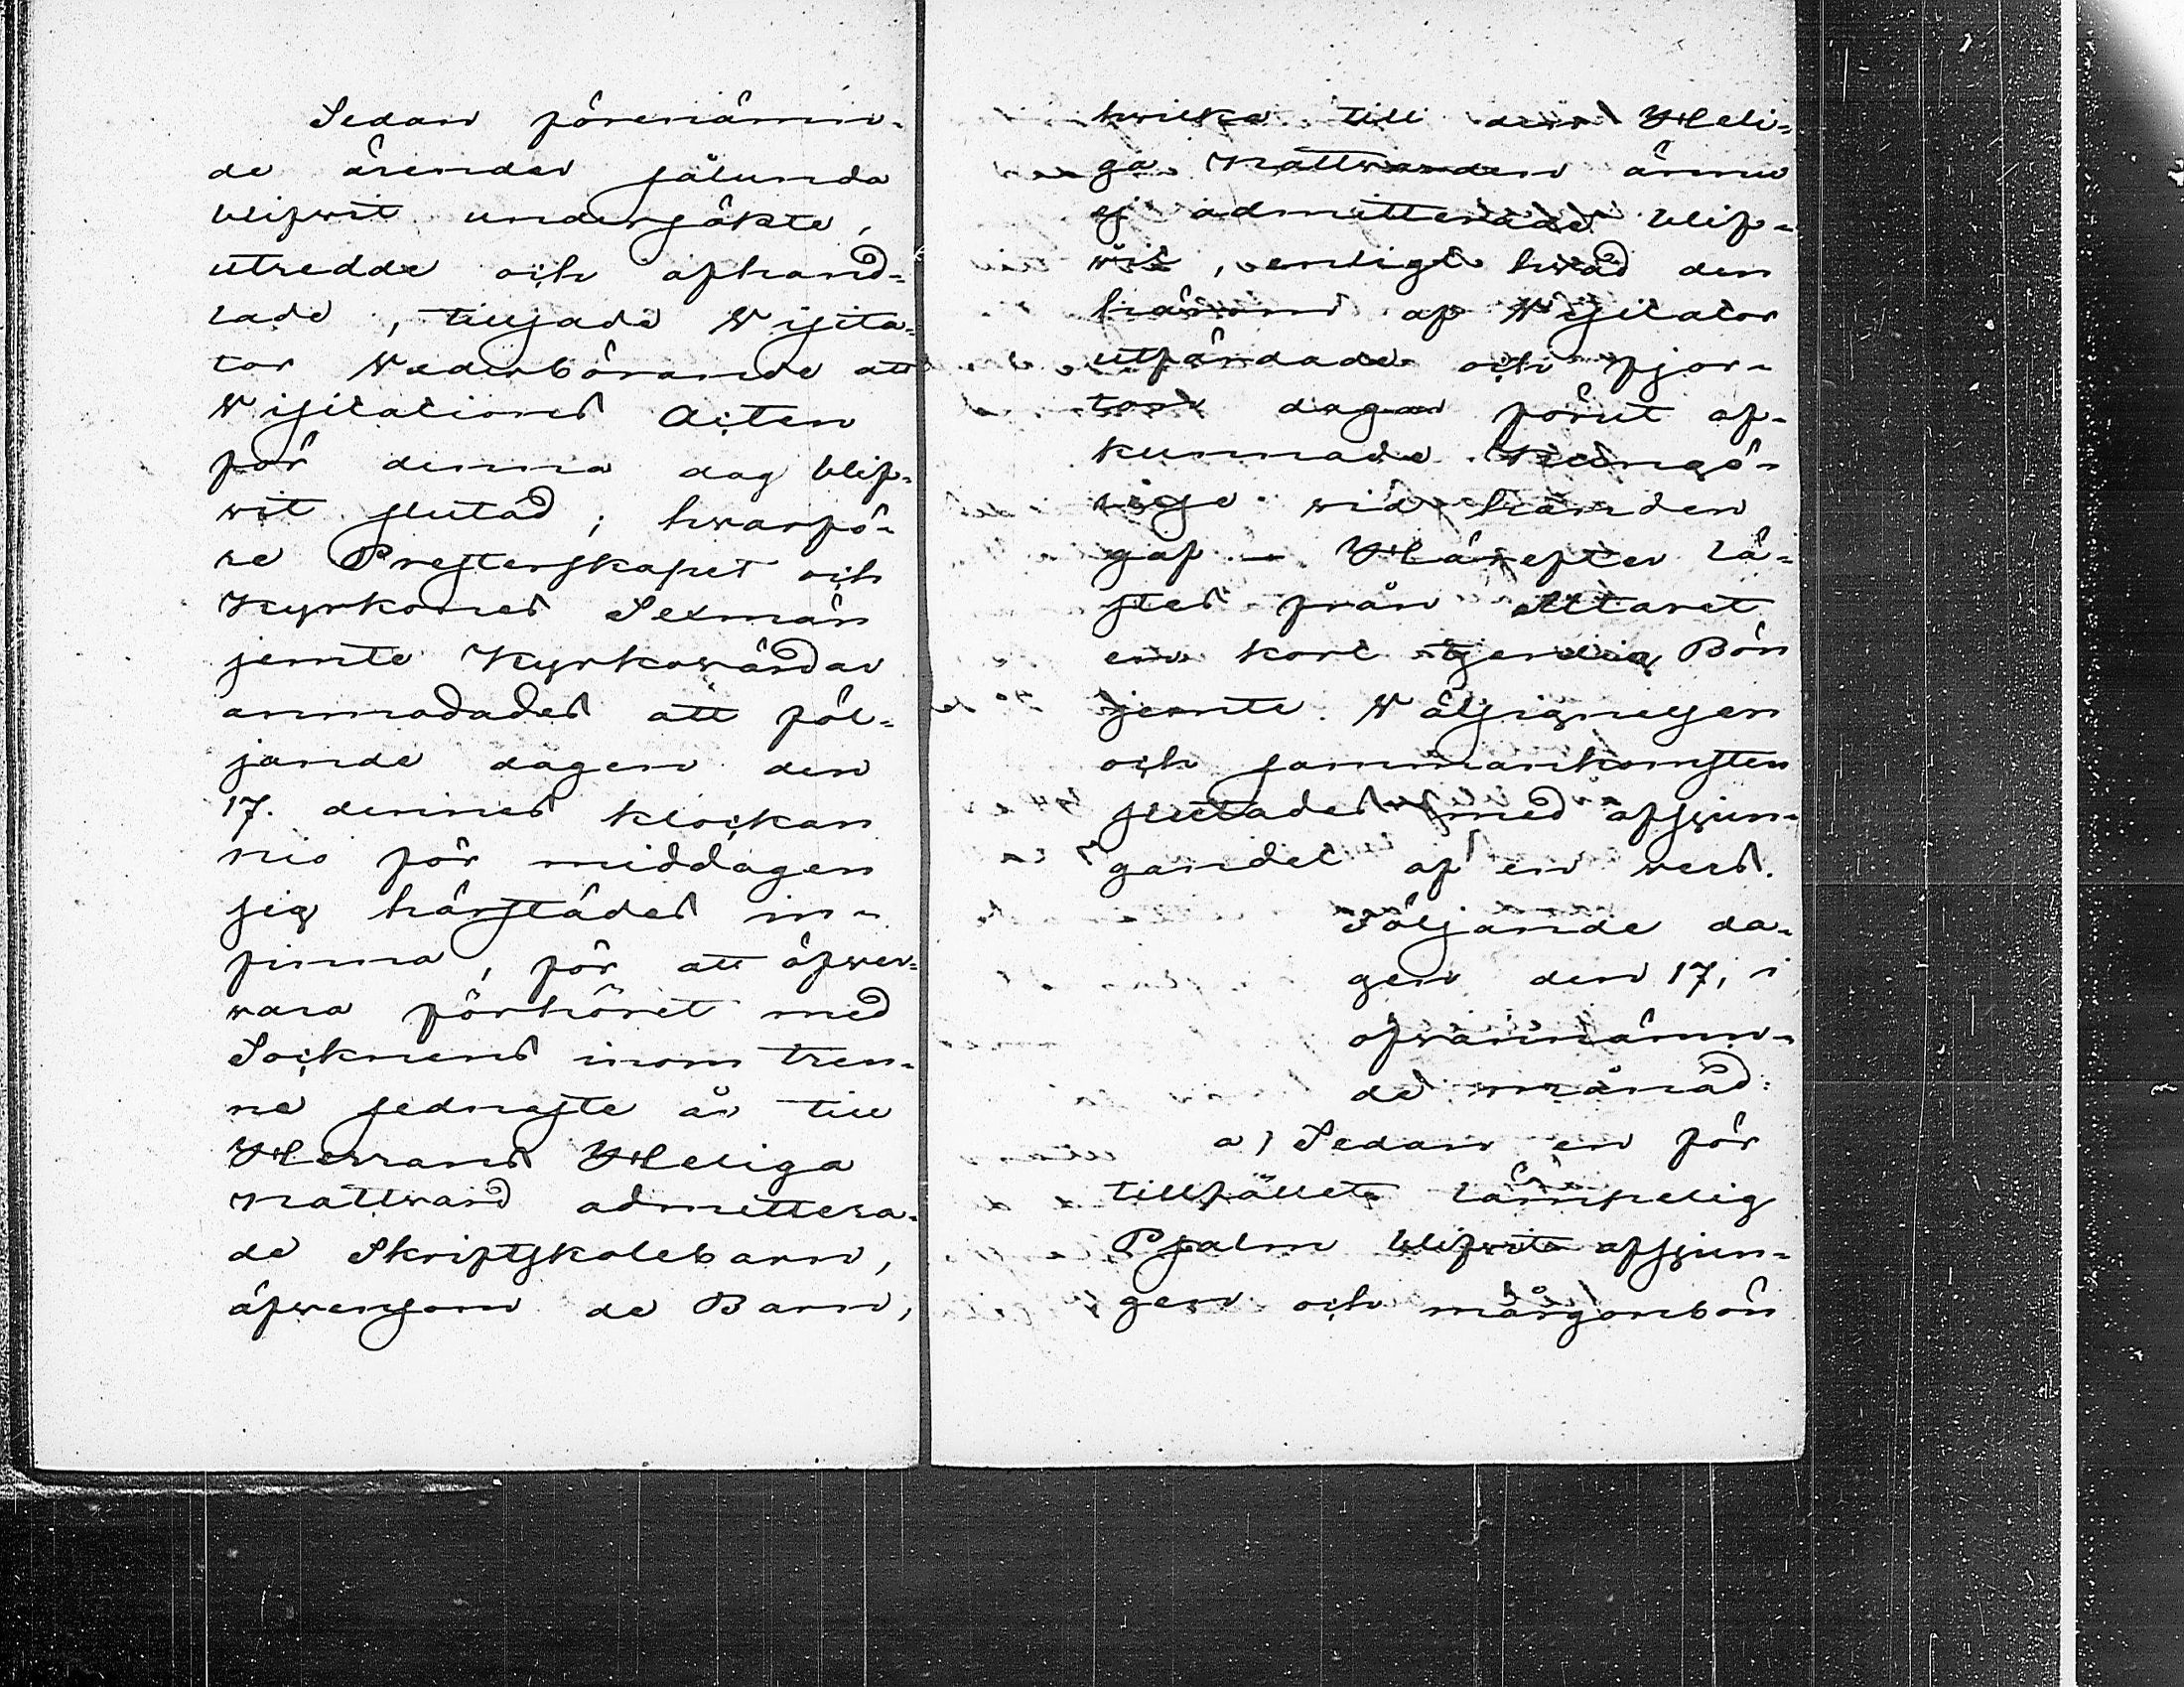 Sedan förenämn-
de ärender sålunda
blifwit undersökte,
utredde och afhand-
lade, tillsade Visita-
tor Wederbörande att
Visitations Acten
för denna dag blif-
wit slutad; hwarfö-
re Presterskapet och
Kyrkones Sexmän
jemte Kyrkowärdar
anmodades att föl-
jande dagen den
17. dennes klockan
nio för middagen
sig härstädes in-
finna, för att öfwer-
wara förhöret med
Socknens inom tren-
ne sednaste år till
Herrans Heliga
Nattward admittera-
de Skriftskolebarn,
äfwensom de Barn,
hwilka till den Heli-
ga Nattwarden ännu
ej admitterade blif-
wit, enligt hwad den
härom af Visitator
utfärdade och fjor-
ton dagar förut af-
kunnade Kungö-
relse wid handen
gaf. - Härefter lä-
stes från Altaret
en kort tjenlig Bön
jemte Wälsignelsen
och sammankomsten
slutades med afsjun-
gandet af en wers.
Följande da-
gen den 17, i
ofwannämn-
de månad:
a) Sedan en för
tillfället lämpelig
Psalm blifwit afsjun-
gen och mårgonbön